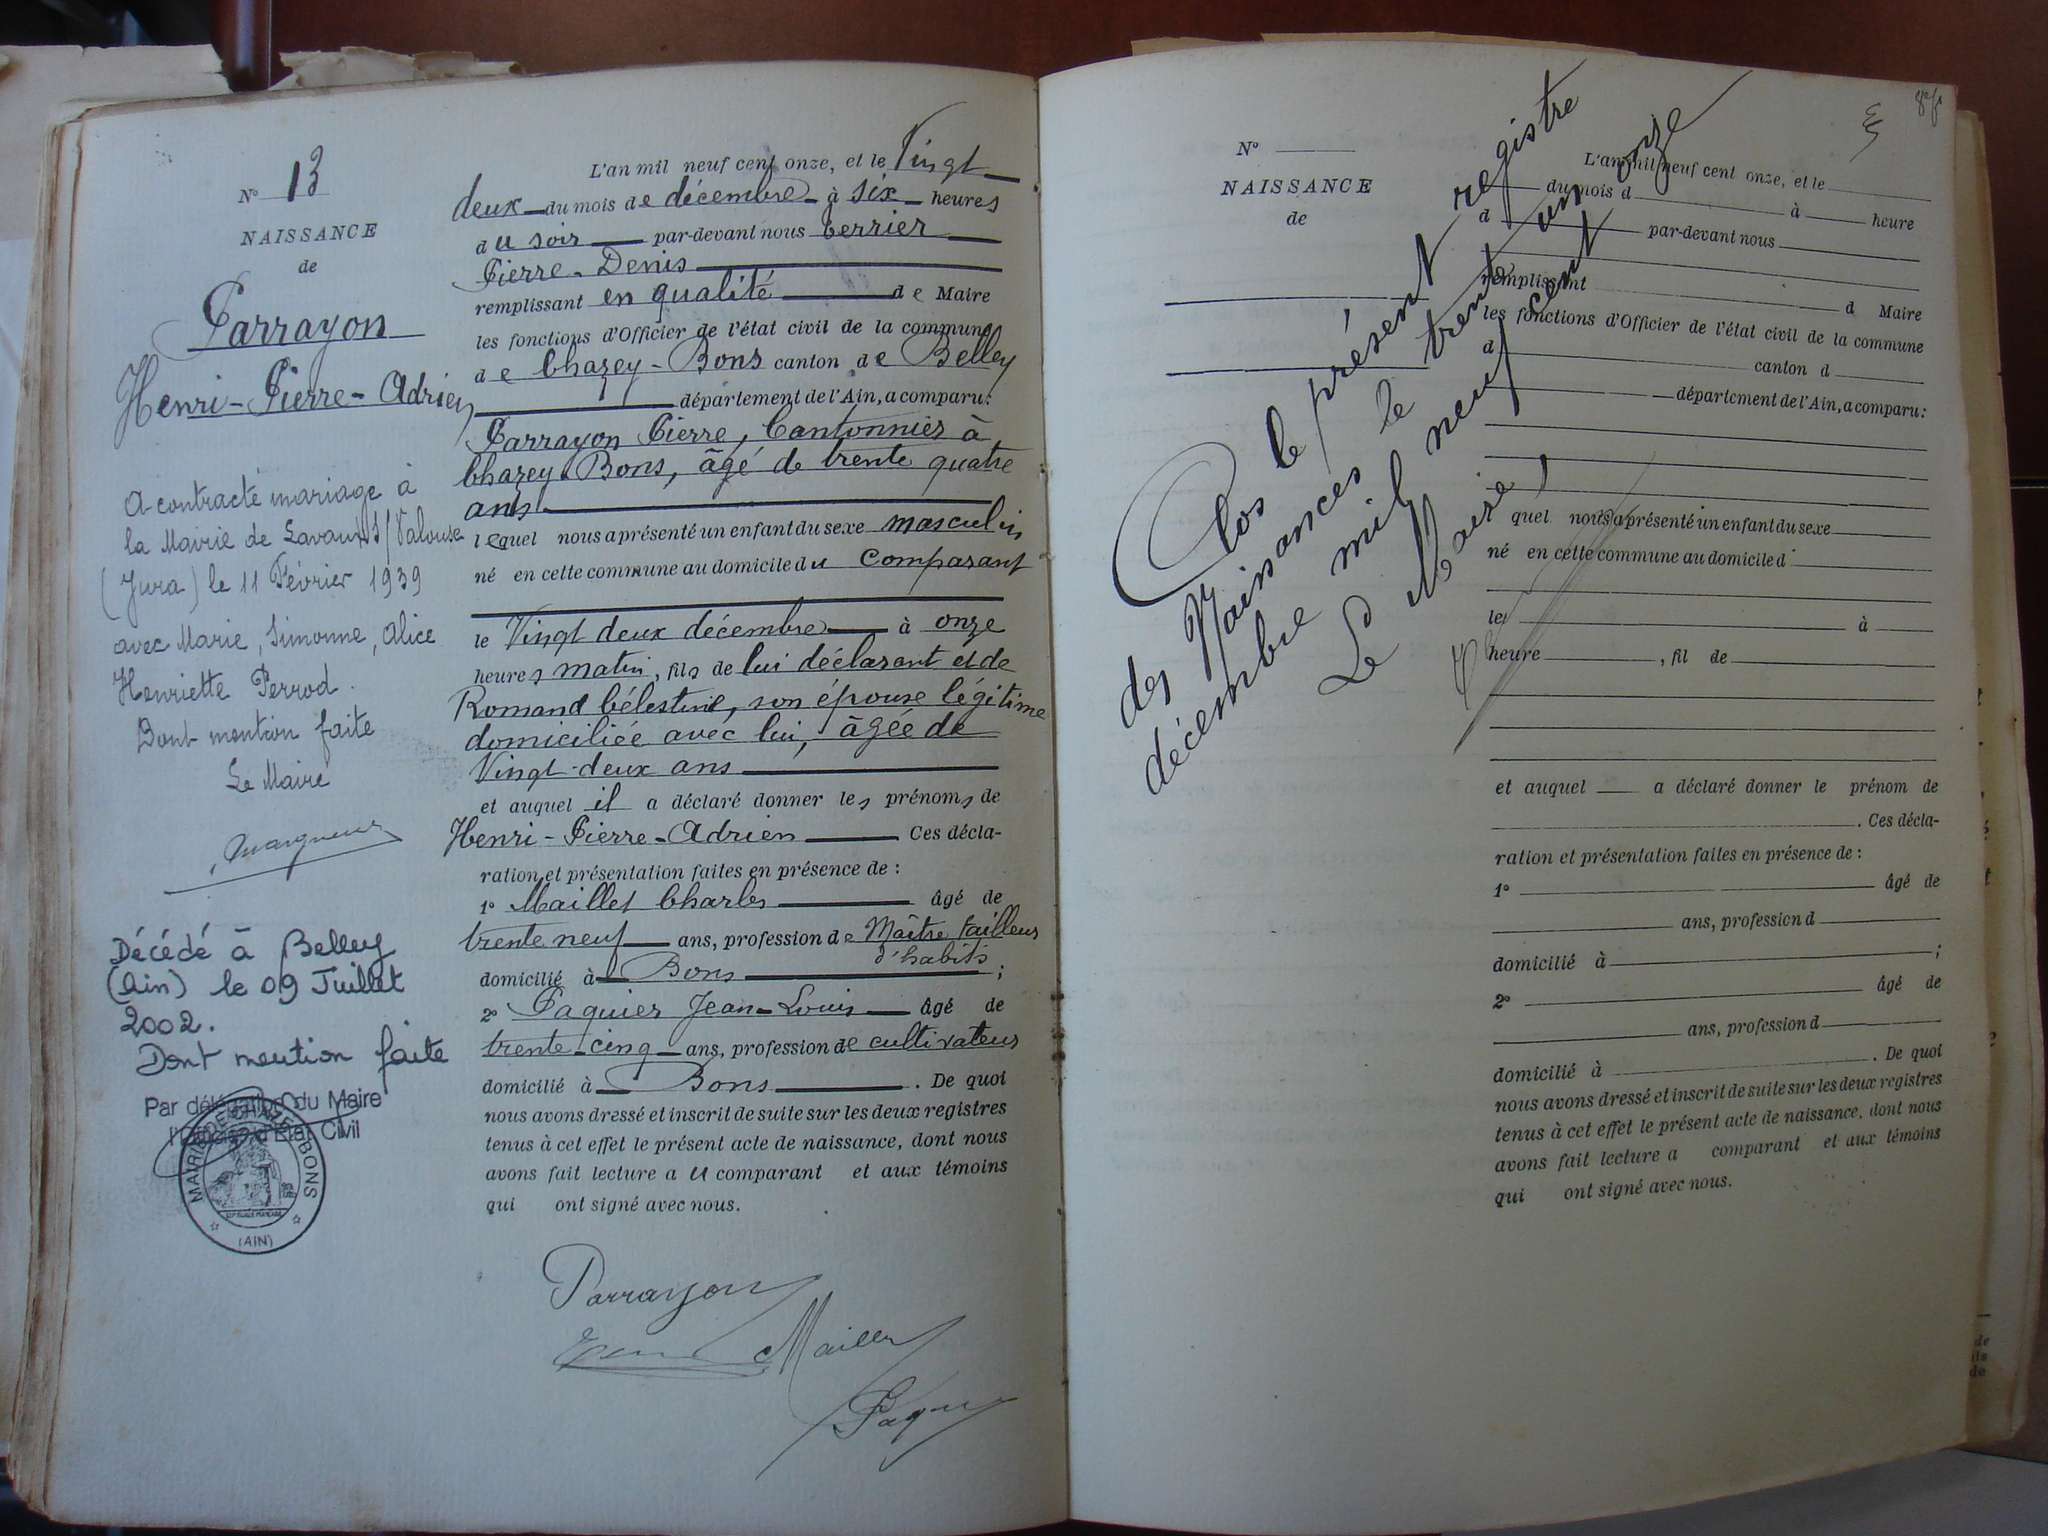 N° 13
NAISSANCE
de
Parrayon
Henri-Pierre-Adrien
A contracté mariage à
la Mairie de Lavans S/ Valouse
(Jura) le 11 Février 1939
avec Marie, Simonne, Alice
Henriette Perrod.
Dont mention faite
Le Maire
Décédé à Belley
(Ain) le 09 Juillet
2002.
Dont mention faite
Par délégation du Maire
l'Officier d'Etat Civil
MAIRIE DE CHAZEY-BONS
(AIN)
L'an mil neuf cent onze, et le Vingt
deux du mois de décembre à six heures
du soir par-devant nous Cerrier
Pierre-Denis
remplissant en qualité de Maire
les fonctions d'Officier de l'état civil de la commune
de Chazey-Bons canton de Belley
département de l'Ain, a comparu:
Parrayon Pierre, Cantonnier à
Chazey-Bons, âgé de trente quatre
ans
lequel nous a présenté un enfant du sexe masculin
né en cette commune au domicile du comparant
le Vingt deux décembre à onze
heures matin, fils de lui déclarant et de
Romand Célestine, son épouse légitime
domiciliée avec lui, âgée de
Vingt-deux ans
et auquel il a déclaré donner les prénoms de
Henri-Pierre-Adrien Ces décla-
ration et présentation faites en présence de :
1° Maillet Charles âgé de
trente neuf ans, profession de Maître tailleur
d'habits
domicilié à Bons ;
2° Paquier Jean-Louis âgé de
trente-cinq ans, profession de cultivateur
domicilié à Bons . De quoi
nous avons dressé et inscrit de suite sur les deux registres
tenus à cet effet le présent acte de naissance, dont nous
avons fait lecture au comparant et aux témoins
qui ont signé avec nous.
Parrayon
Maillet
N°
NAISSANCE
de
Clos le présent registre
des Naissances le trente un
décembre mil neuf cent onze
Le Maire,
L'an mil neuf cent onze, et le
du mois d à heure
d par-devant nous
remplissant d Maire
les fonctions d'Officier de l'état civil de la commune
d canton d
département de l'Ain, a comparu:
l quel nous a présenté un enfant du sexe
né en cette commune au domicile d
le à
heure , fil de
et auquel a déclaré donner le prénom de
. Ces décla-
ration et présentation faites en présence de :
1° âgé de
ans, profession d
domicilié à ;
2° âgé de
ans, profession d
domicilié à . De quoi
nous avons dressé et inscrit de suite sur les deux registres
tenus à cet effet le présent acte de naissance, dont nous
avons fait lecture a comparant et aux témoins
qui ont signé avec nous.